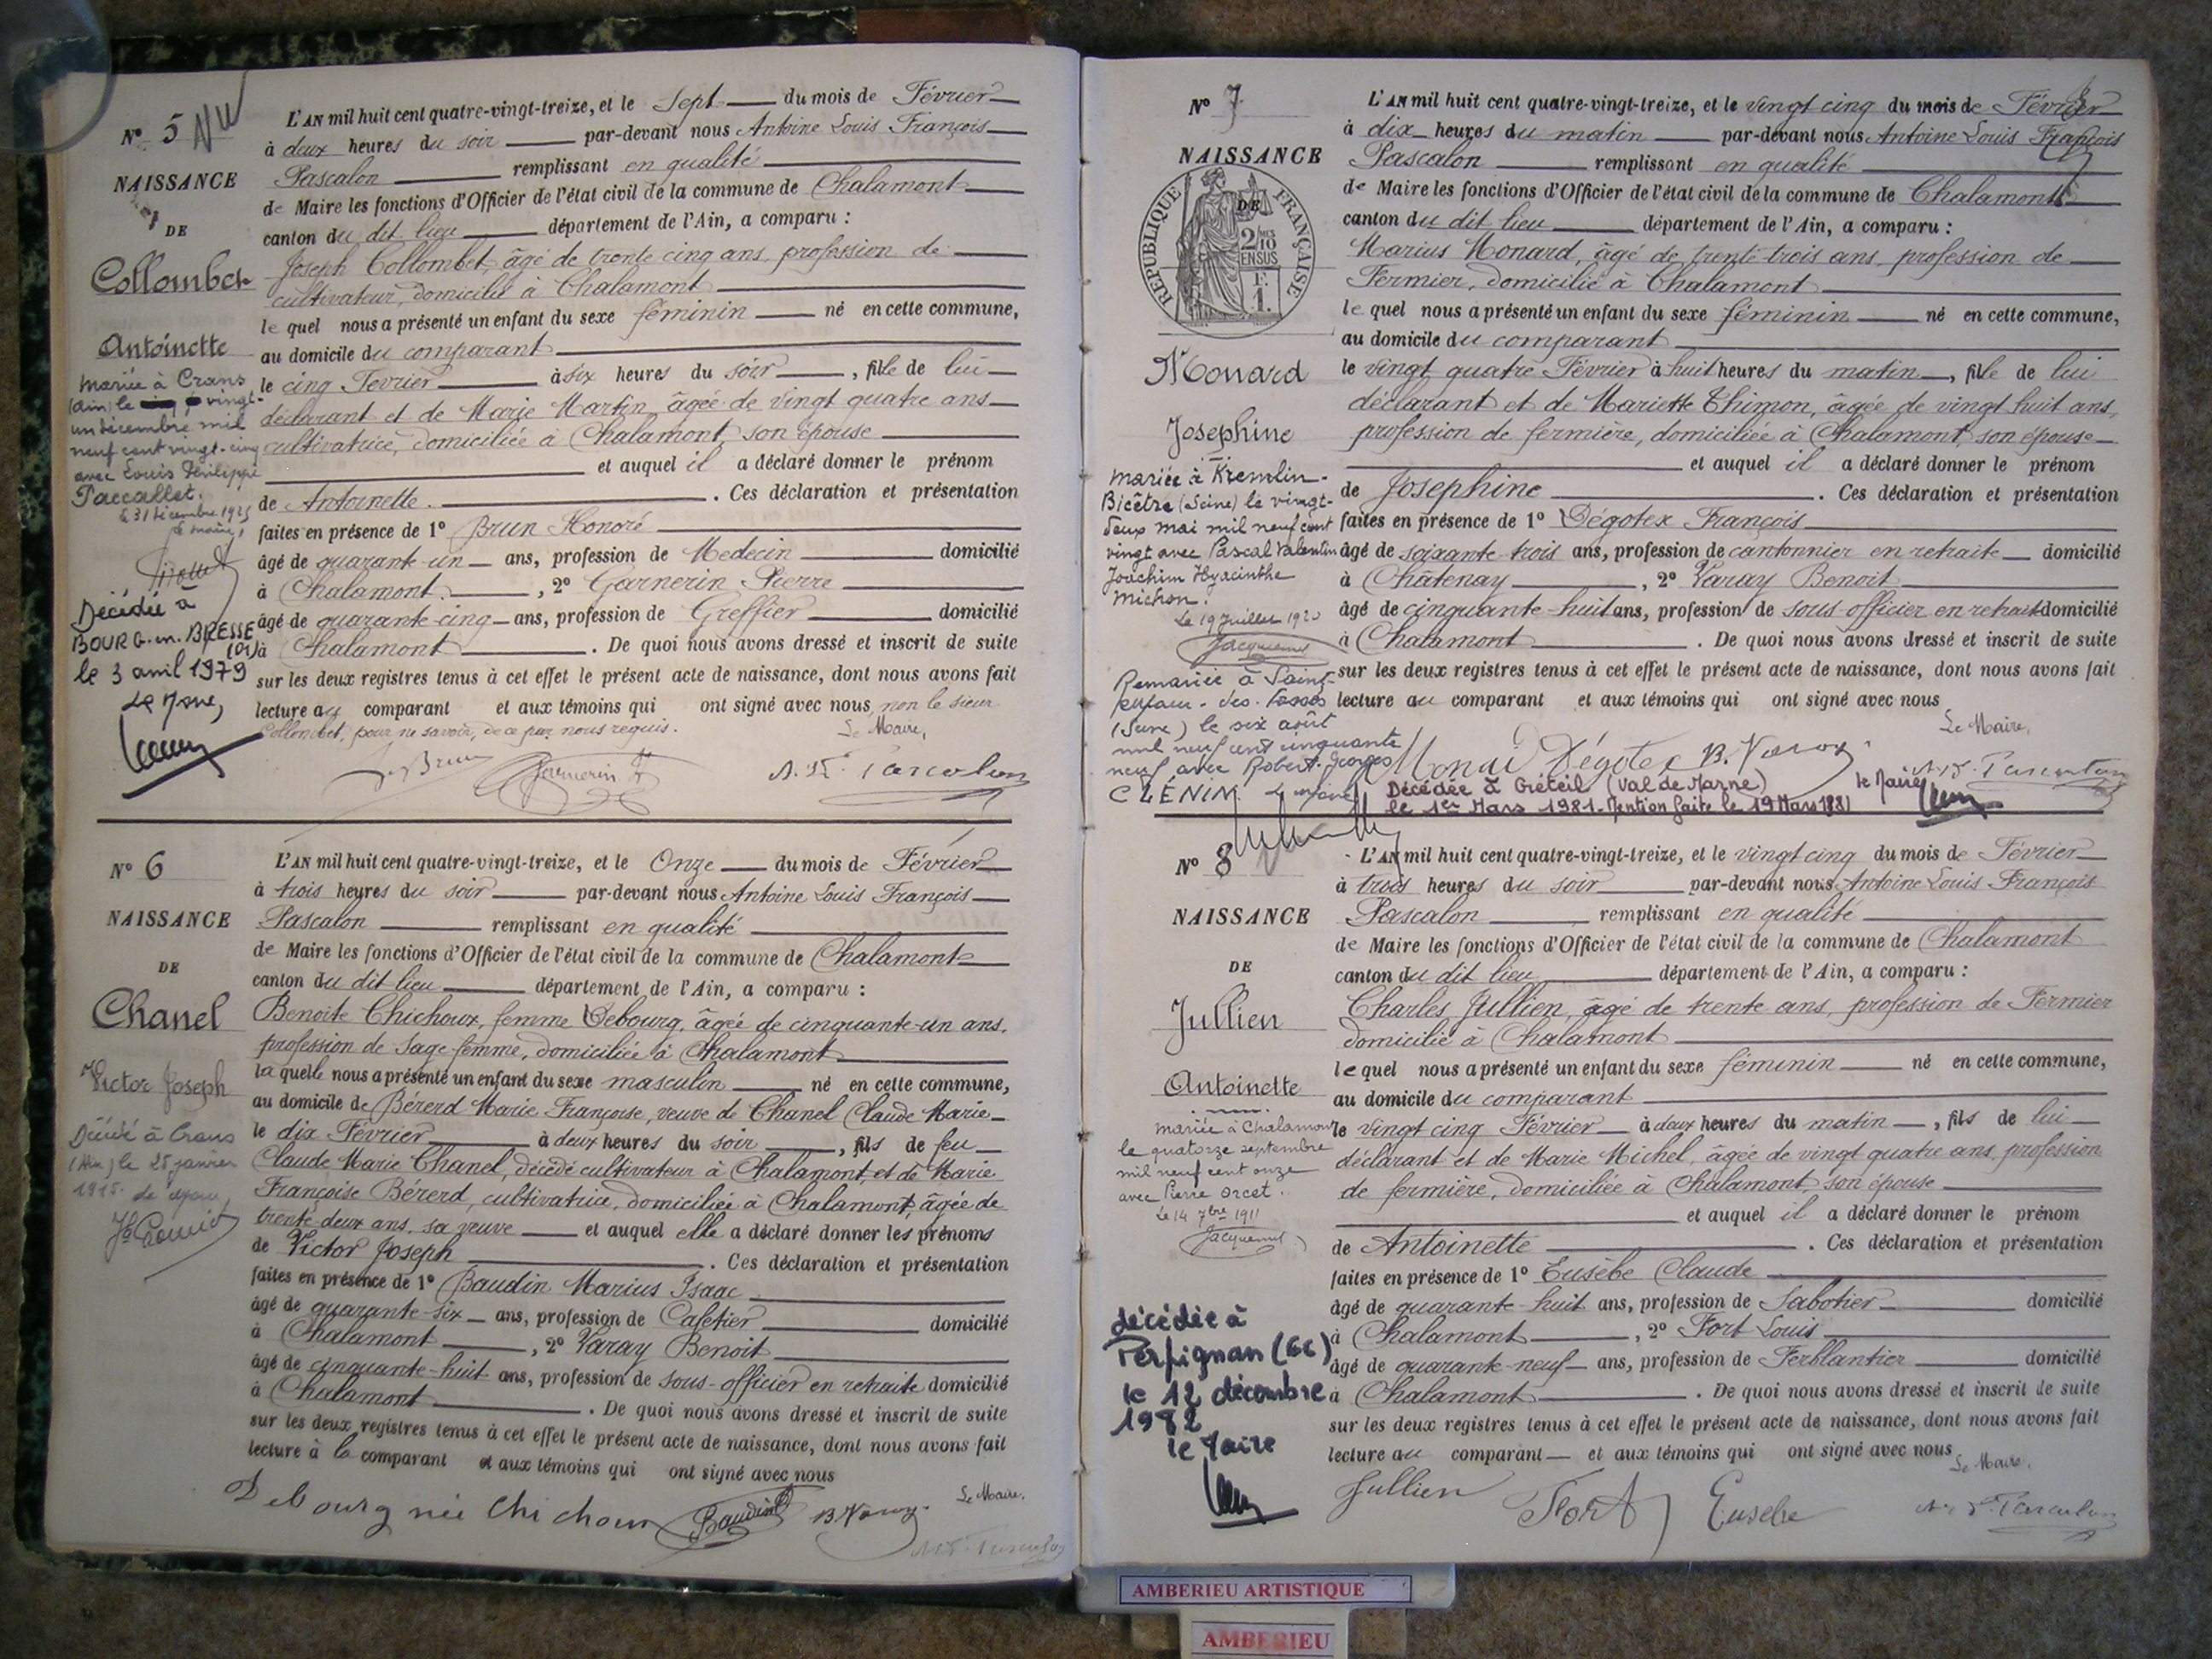 N° 5
NAISSANCE
DE
Collombet
Antoinette
mariée à Crans
(Ain) le vingt-
un décembre mil
neuf cent vingt-cinq
avec Louis Philippe
Paccallet.
le 31 décembre 1925
le maire,
Décédée à
BOURG-en-BRESSE
(01)
le 3 avril 1979
Le Maire,
L'AN mil huit cent quatre-vingt-treize, et le Sept du mois de Février
à deux heures du soir par-devant nous Antoine Louis François
Pascalon remplissant en qualité
de Maire les fonctions d'Officier de l'état civil de la commune de Chalamont
canton du dit lieu département de l'Ain, a comparu :
Joseph Collombet, âgé de trente cinq ans, profession de
cultivateur, domicilié à Chalamont
le quel nous a présenté un enfant du sexe féminin né en cette commune,
au domicile du comparant
le cinq Fevrier à six heures du soir, fille de lui
déclarant et de Marie Martin âgée de vingt quatre ans
cultivatrice, domiciliée à Chalamont, son épouse
et auquel il a déclaré donner le prénom
de Antoinette. Ces déclaration et présentation
faites en présence de 1° Brun Honoré
âgé de quarante-un ans, profession de Medecin domicilié
à Chalamont, 2° Garnerin Pierre
âgé de quarante-cinq ans, profession de Greffier domicilié
à Chalamont. De quoi nous avons dressé et inscrit de suite
sur les deux registres tenus à cet effet le présent acte de naissance, dont nous avons fait
lecture au comparant et aux témoins qui ont signé avec nous, non le sieur
Collombet, pour ne savoir, de ce par nous requis.
Le Maire,
Brun Garnerin A. L. F. Pascalon
N° 6
NAISSANCE
DE
Chanel
Victor Joseph
Décédé à Crans
(Ain) le 25 janvier
1915.
L'AN mil huit cent quatre-vingt-treize, et le Onze du mois de Février
à trois heures du soir par-devant nous Antoine Louis François
Pascalon remplissant en qualité
de Maire les fonctions d'Officier de l'état civil de la commune de Chalamont
canton du dit lieu département de l'Ain, a comparu :
Benoite Chichoux, femme Debourg, âgée de cinquante-un ans,
profession de Sage-femme, domiciliée à Chalamont
la quelle nous a présenté un enfant du sexe masculin né en cette commune,
au domicile de Bérerd Marie Françoise, veuve de Chanel Claude Marie
le dix Février à deux heures du soir, fils de feu
Claude Marie Chanel, décédé cultivateur à Chalamont, et de Marie
Françoise Bérerd, cultivatrice, domiciliée à Chalamont, âgée de
trente deux ans, sa veuve et auquel elle a déclaré donner les prénoms
de Victor Joseph. Ces déclaration et présentation
faites en présence de 1° Baudin Marius Isaac
âgé de quarante-six ans, profession de Cafetier domicilié
à Chalamont, 2° Varay Benoit
âgé de cinquante-huit ans, profession de sous-officier en retraite domicilié
à Chalamont. De quoi nous avons dressé et inscrit de suite
sur les deux registres tenus à cet effet le présent acte de naissance, dont nous avons fait
lecture à la comparant et aux témoins qui ont signé avec nous
Le Maire,
Debourg née Chichoux Baudin B. Varay A. L. F. Pascalon
N° 7
NAISSANCE
DE
REPUBLIQUE FRANÇAISE
2/10 MES
EN SUS
1 F.
Monard
Josephine
mariée à Kremlin-
Bicêtre (Seine) le vingt-
deux mai mil neuf cent
vingt avec Pascal Valentin
Joachim Hyacinthe
Michon.
Le 19 Juillet 1920
Jacquemet
Remariée à Saint-
Maur-des-Fossés
(Seine) le six août
mil neuf cent cinquante
neuf avec Robert Georges
CLÉNIN
L'AN mil huit cent quatre-vingt-treize, et le vingt cinq du mois de Février
à dix heures du matin par-devant nous Antoine Louis François
Pascalon remplissant en qualité
de Maire les fonctions d'Officier de l'état civil de la commune de Chalamont
canton du dit lieu département de l'Ain, a comparu :
Marius Monard, âgé de trente-trois ans, profession de
Fermier, domicilié à Chalamont
le quel nous a présenté un enfant du sexe féminin né en cette commune,
au domicile du comparant
le vingt quatre Février à huit heures du matin, fille de lui
déclarant et de Mariette Thimon, âgée de vingt huit ans,
profession de fermière, domiciliée à Chalamont, son épouse
et auquel il a déclaré donner le prénom
de Josephine. Ces déclaration et présentation
faites en présence de 1° Dégotex François
âgé de soixante-trois ans, profession de cantonnier en retraite domicilié
à Châtenay, 2° Varay Benoit
âgé de cinquante-huit ans, profession de sous-officier en retraite domicilié
à Chalamont. De quoi nous avons dressé et inscrit de suite
sur les deux registres tenus à cet effet le présent acte de naissance, dont nous avons fait
lecture au comparant et aux témoins qui ont signé avec nous
Le Maire,
Monard Dégotex B. Varay A. L. F. Pascalon
Décédée à Créteil (Val de Marne)
le 1er Mars 1981. Mention faite le 19 Mars 1981
le Maire
N° 8
NAISSANCE
DE
Jullien
Antoinette
mariée à Chalamont
le quatorze septembre
mil neuf cent onze
avec Pierre Orcet.
Le 14 7bre 1911
Jacquemet
décédée à
Perpignan (66)
le 12 décembre
1982
le Maire
L'AN mil huit cent quatre-vingt-treize, et le vingt cinq du mois de Février
à trois heures du soir par-devant nous Antoine Louis François
Pascalon remplissant en qualité
de Maire les fonctions d'Officier de l'état civil de la commune de Chalamont
canton du dit lieu département de l'Ain, a comparu :
Charles Jullien, âgé de trente ans, profession de Fermier
domicilié à Chalamont
le quel nous a présenté un enfant du sexe féminin né en cette commune,
au domicile du comparant
le vingt cinq Février à deux heures du matin, fils de lui
déclarant et de Marie Michel, âgée de vingt quatre ans, profession
de fermière, domiciliée à Chalamont, son épouse
et auquel il a déclaré donner le prénom
de Antoinette. Ces déclaration et présentation
faites en présence de 1° Eusèbe Claude
âgé de quarante-huit ans, profession de Sabotier domicilié
à Chalamont, 2° Fort Louis
âgé de quarante-neuf ans, profession de Ferblantier domicilié
à Chalamont. De quoi nous avons dressé et inscrit de suite
sur les deux registres tenus à cet effet le présent acte de naissance, dont nous avons fait
lecture au comparant et aux témoins qui ont signé avec nous
Le Maire,
Jullien Fort Eusebe A. L. F. Pascalon
AMBERIEU ARTISTIQUE
AMBERIEU